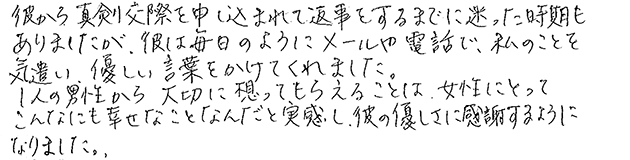 彼から真剣交際を申し込まれて返事をするまでに迷った時期も
ありましたが、彼は毎日のようにメールや電話で、私のことを
気遣い、優しい言葉をかけてくれました。
1人の男性から大切に想ってもらえることは、女性にとって
こんなにも幸せなことなんだと実感し、彼の優しさに感謝するように
なりました。